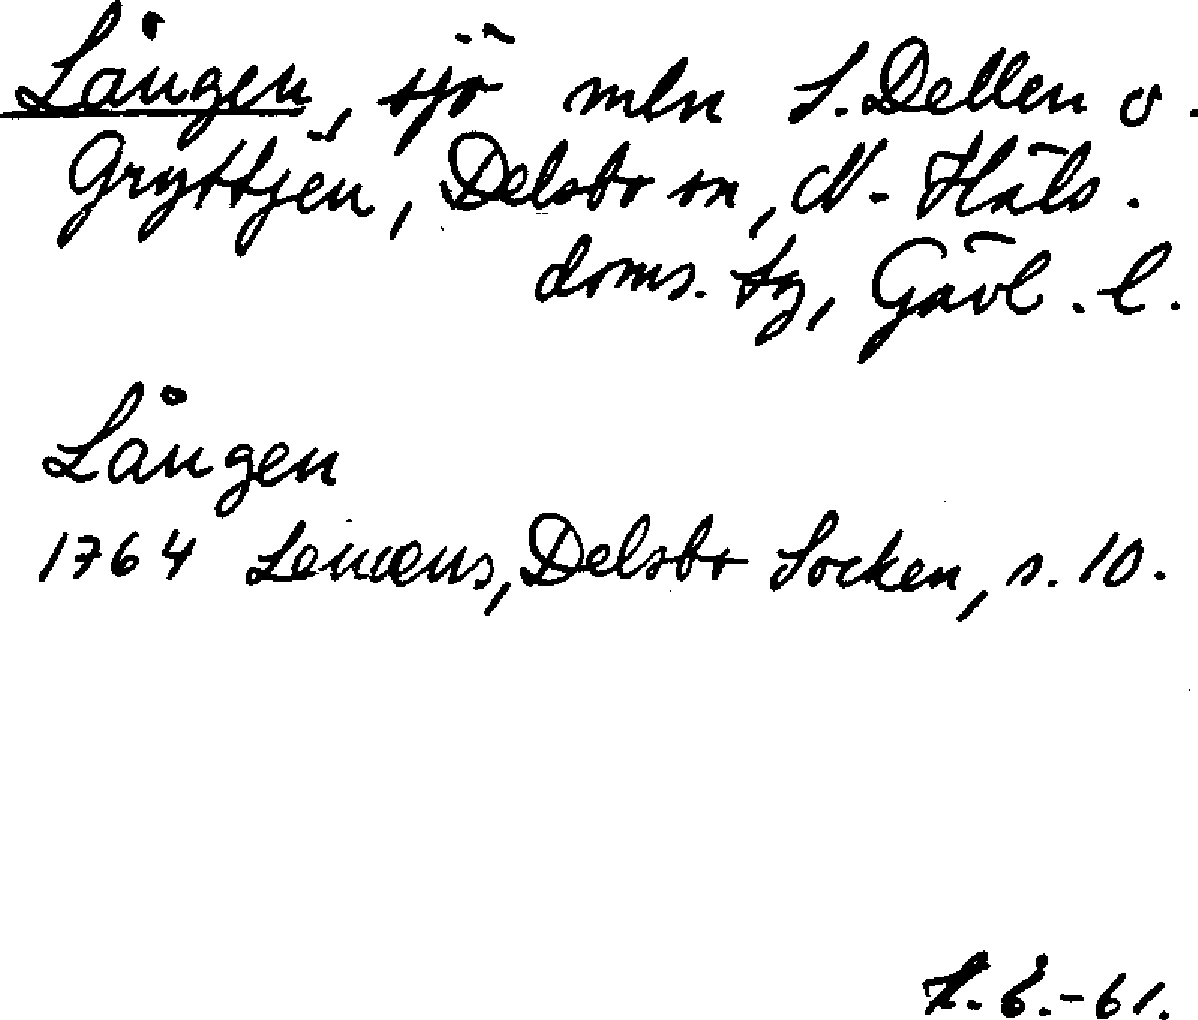 Lången, sjö mln S. Dellen o.
Gryttjen, Delsbo sn, N. Häls.
doms. tg, Gävl. l.
Lången
1764 Lenæus, Delsbo Socken, s. 10.
-61.